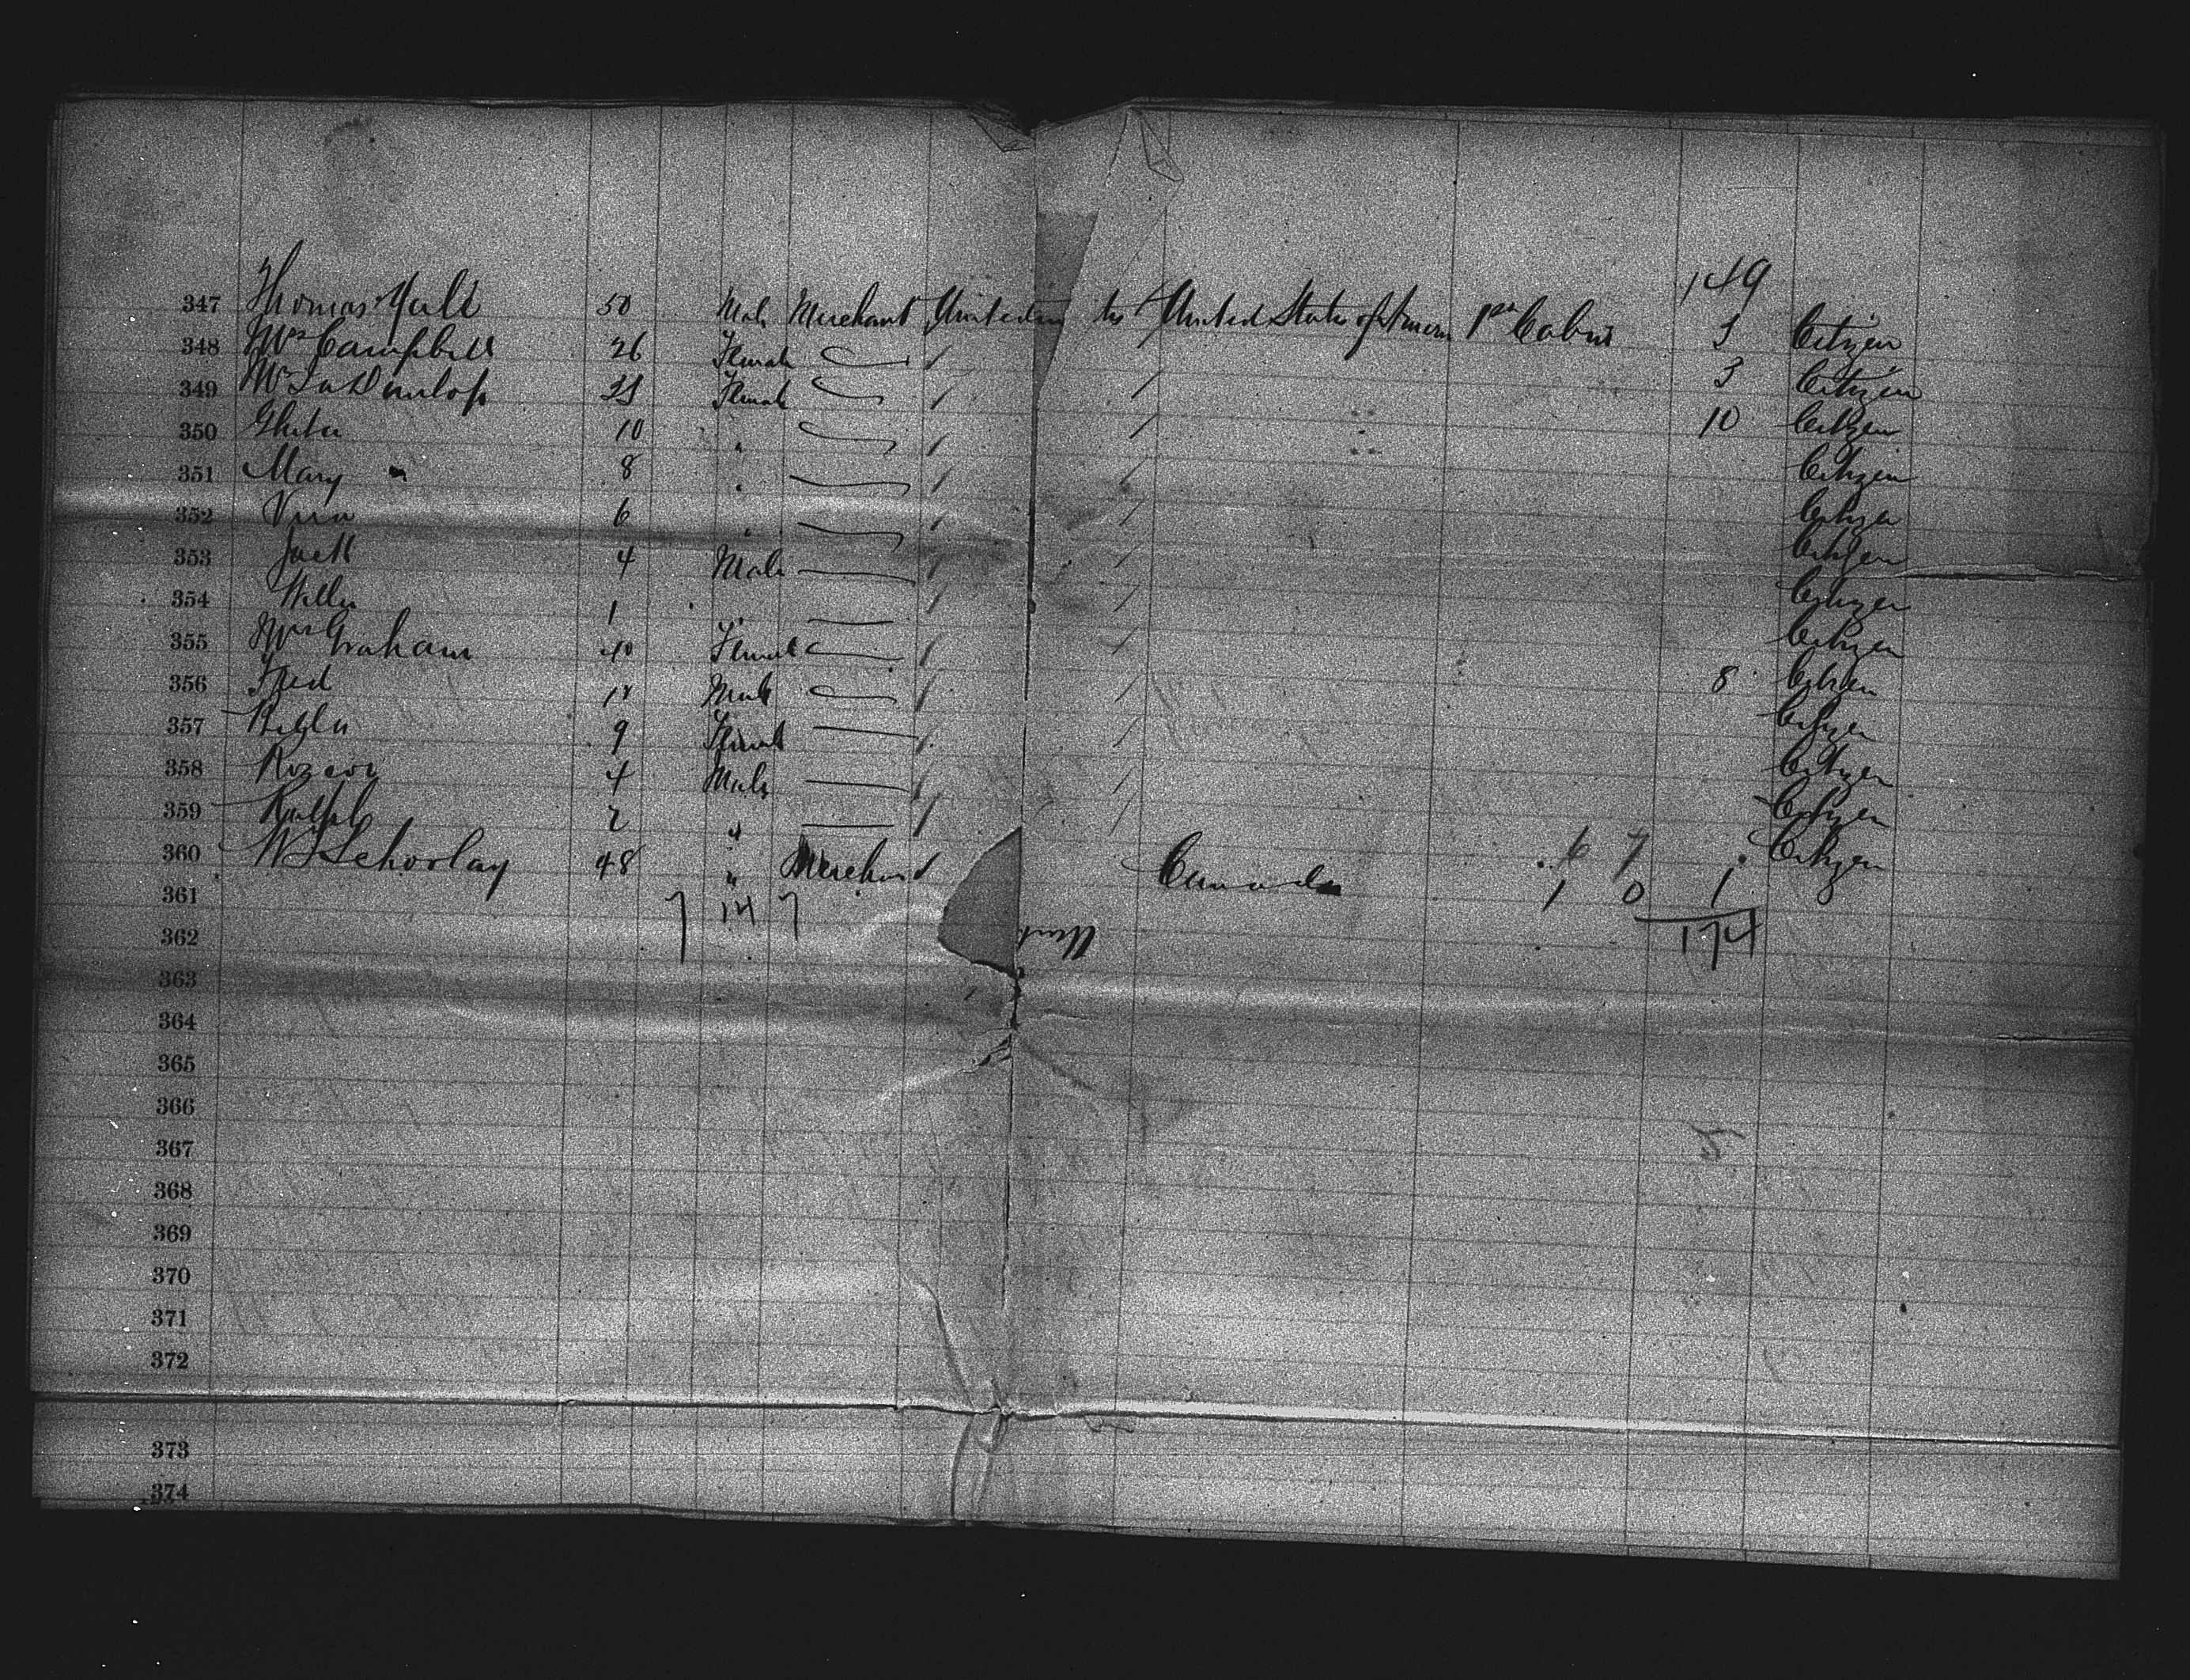 149
347 Thomas Yule 50 Male Merchant United States United States of America 1st Cabin 3 Citizen
348 Mrs Campbell 26 Female / / 3 Citizen
349 Dunlop Female / / 10 Citizen
350 10 " / / Citizen
351 Mary " 8 " / / Citizen
352 Vera 6 " / / Citizen
353 Jack 4 Male / / Citizen
354 1 " / / Citizen
355 Mrs Graham 40 Female / / 8 Citizen
356 Fred Male / / Citizen
357 9 Female / / Citizen
358 4 Male / / Citizen
359 Ralph 2 " / / Citizen
360 48 " Merchant Canada 6 7
361 7 14 7 1 0 1
362 174
363
364
365
366
367
368
369
370
371
372
373
374